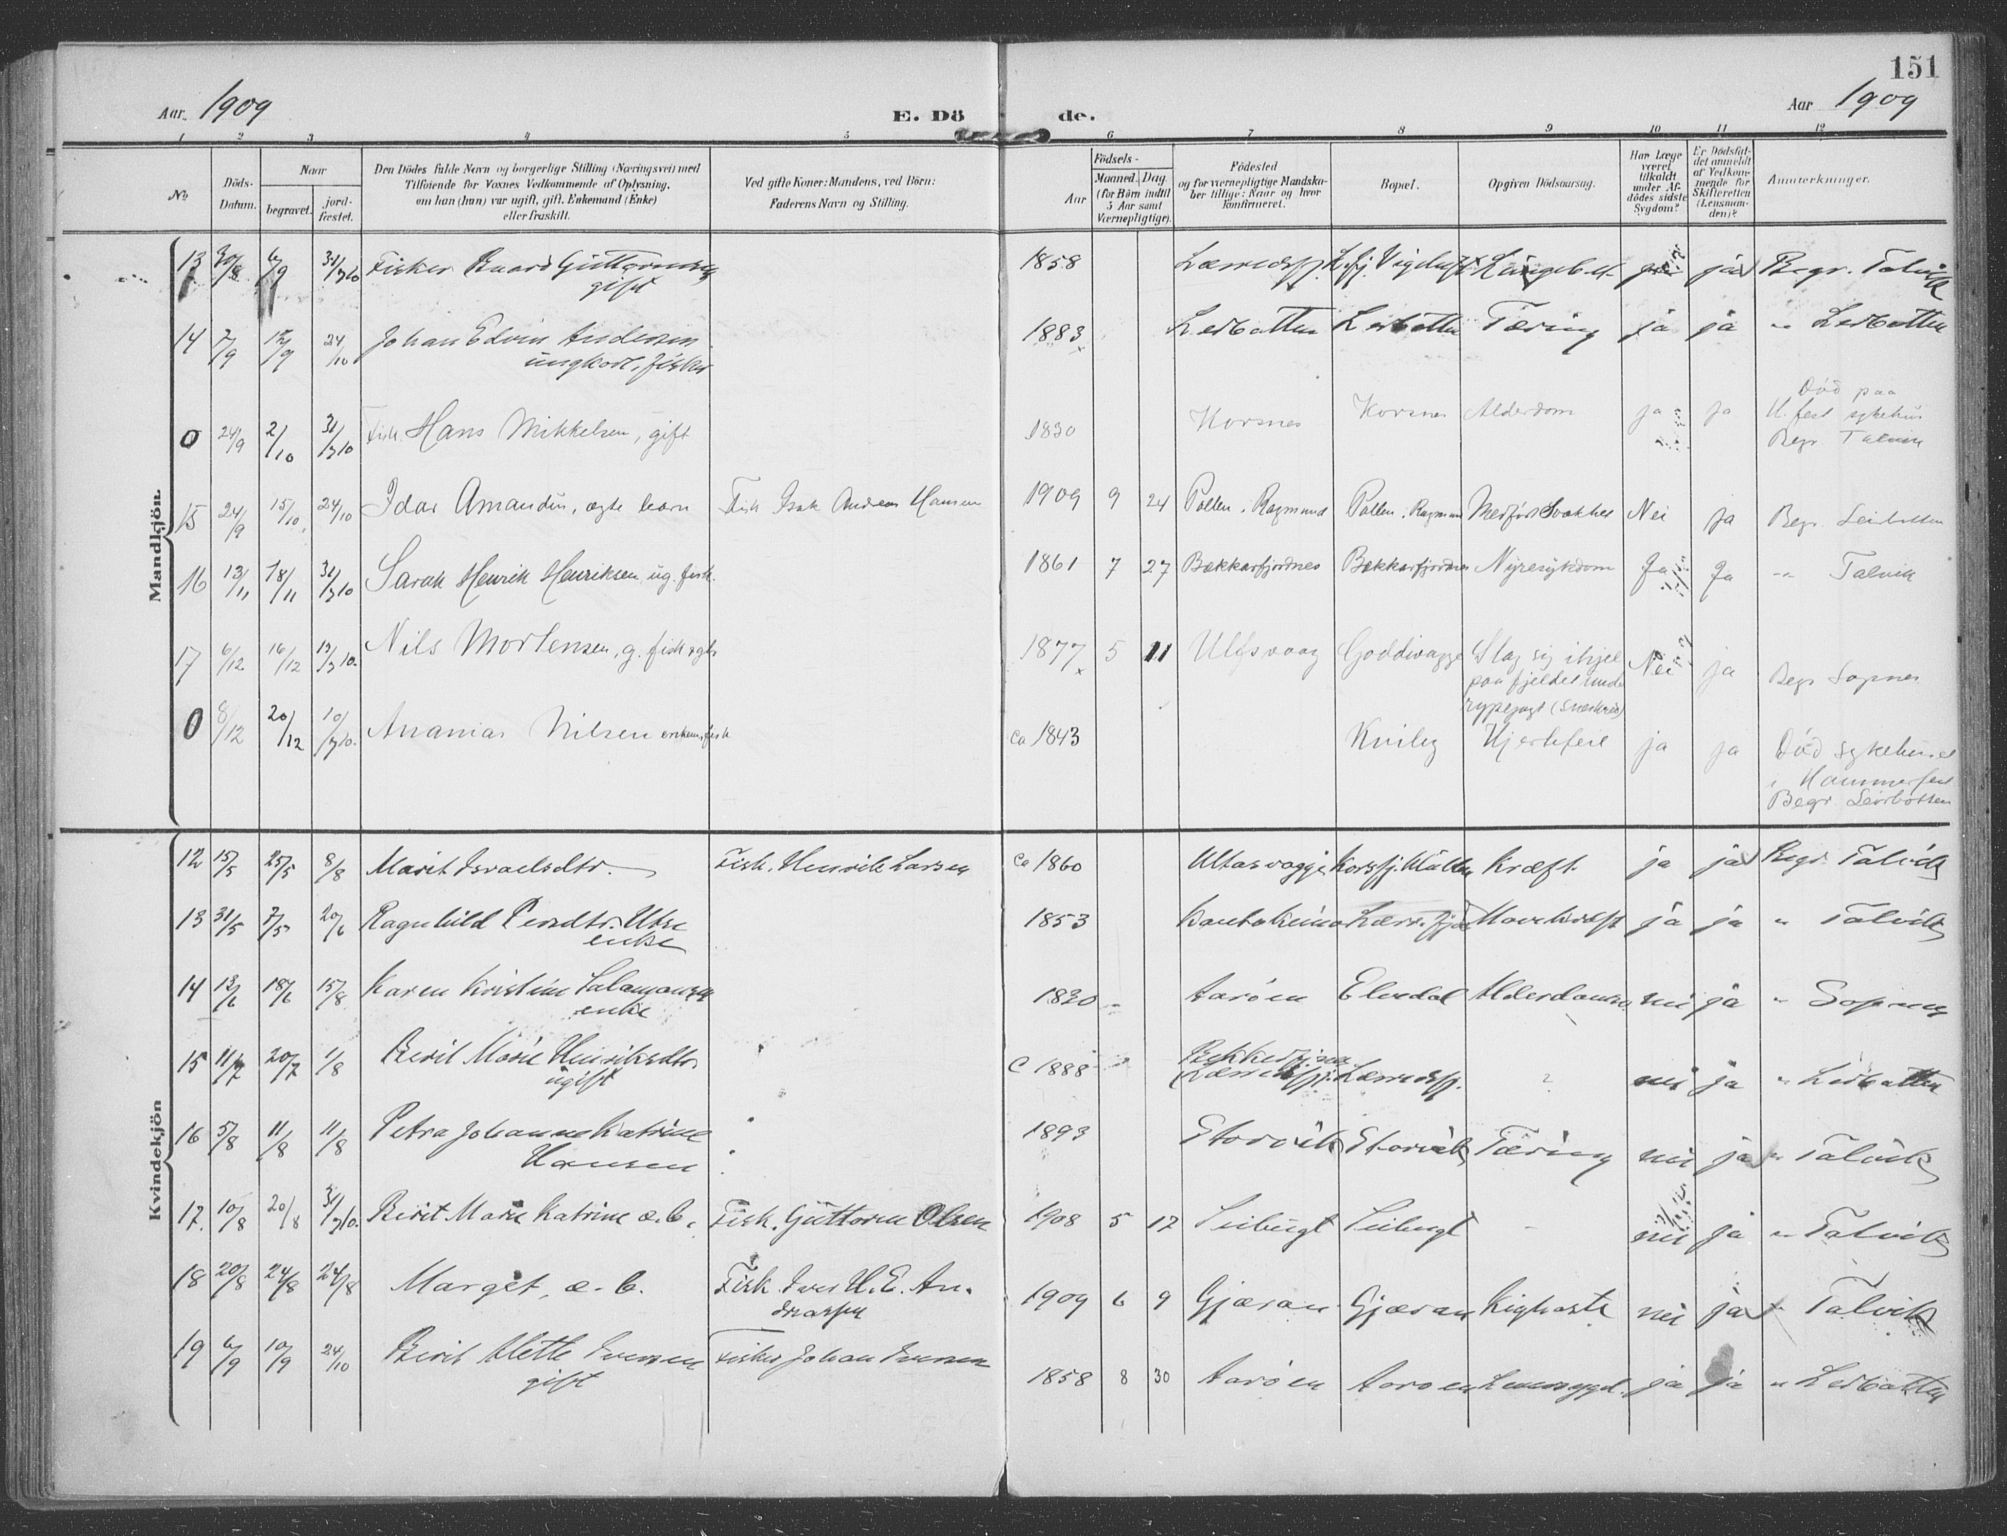 151
Aar 1909
E. Dö de.
Aar 1909
1 2 3 4 5 6 7 8 9 10 11 12
No
Döds-
Datum.
Naar
begravet.
jord-
fæstet.
Den Dödes fulde Navn og borgerlige Stilling (Næringsvei) med
Tilføiende for Voxnes Vedkommende af Oplysning,
om han (hun) var ugift, gift, Enkemand (Enke)
eller fraskilt.
Ved gifte Koner: Mandens, ved Börn:
Faderens Navn og Stilling.
Födsels-
Aar
Maaned. Dag
(for Börn indtil
5 Aar samt
Værnepligtige).
Födested
og for værnepligtige Mandska-
ber tillige: Naar og hvor
konfirmeret.
Bopæl.
Opgiven Dödsaarsag.
Har Læge
været
tilkaldt
under Af-
dödes sidste
Sygdom?
Er Dödsfal-
det anmeldt
af Vedkom-
mende for
Skifteretten
(Lensman-
den)?
Anmærkninger.
Mandkjön.
13 30/8 6/9 31/3 10 Fisker Baard Guttormsen 1858 Lærredsfj. ja ja Begr. Talvik
gift
14 7/9 12/9 24/10 Johan Edvin Andersen 1883 Lerbotten Lerbotten Tæring ja ja " Lerbotten
ungkarl, fisker
0 24/9 2/10 31/3 10 Fisk. Hans Mikkelsen, gift 1830 Korsnes Korsnes Alderdom ja ja Død paa
H. fest sykehus
Begr Talvik
15 24/9 15/10 24/10 Idar Amandus, ægte barn Fisk Isak Andreas Hansen 1909 9 24 Pollen, Rognsund Pollen, Rognsund Medfødt Svakhet Nei ja Begr Leirbotten
16 13/11 18/11 31/3 10 Sarak Henrik Henriksen, ug. fisk. 1861 7 27 Bekkarfjordnes Bekkarfjordnes Nyresykdom Ja Ja " Talvik
17 6/12 16/12 13/3 10. Nils Mortensen, g. fisk 1877 5 11 Ulfsvaag Goddivagge Slog sig ihjel Nei ja Begr Sopnes
paa fjeldet under
rypejagt
0 8/12 20/12 10/3 10. Ananias Nilsen enkem. fisk ca 1843 Kviby Hjertefeil ja ja Død sykehuset
i Hammerfest
Begr. Leirbotten
Kvindekjön
12 15/5 25/5 8/8 Marit Israelsdtr. Fisk. Henrik Larsen ca 1860 Ultasvagge Korsfj. Kræft ja ja Begr. Talvik
13 31/5 7/5 20/6 Ragnhild Persdtr. Utse 1853 Kautokeino Mavekræft ja ja " Talvik
enke
14 13/6 18/6 15/8 Karen Kristine Salamonsen 1820 Aarøen Elvedal nei ja " Sopnes
enke
15 11/7 20/7 1/8 Berit Marie Henriksdtr. C 1888 Lærredsfj. Lærredsfj. ? nei ja " Lerbotten
ugift
16 5/8 11/8 11/8 Petra Johanne Katrine 1893 Storvik Storvik Tæring nei ja " Talvik
Hansen
17. 10/8 20/8 31/3 10. Berit Marie Katrine æ. b. Fisk. Guttorm Olsen 1908 5 17 Seibugt Seibugt - nei ja " Talvik
18 20/8 24/8 24/8 Marget, æ. b. Fisk. Iver H. E. An- 1909 6 9 Gjæran Gjæran Kighoste nei ja " Talvik
dreassen
19 6/9 10/9 24/10 Berit Mette Iversen Fisker Johan Iversen 1858 8 30 Aarøen Aarøen ja ja " Lerbotten
gift